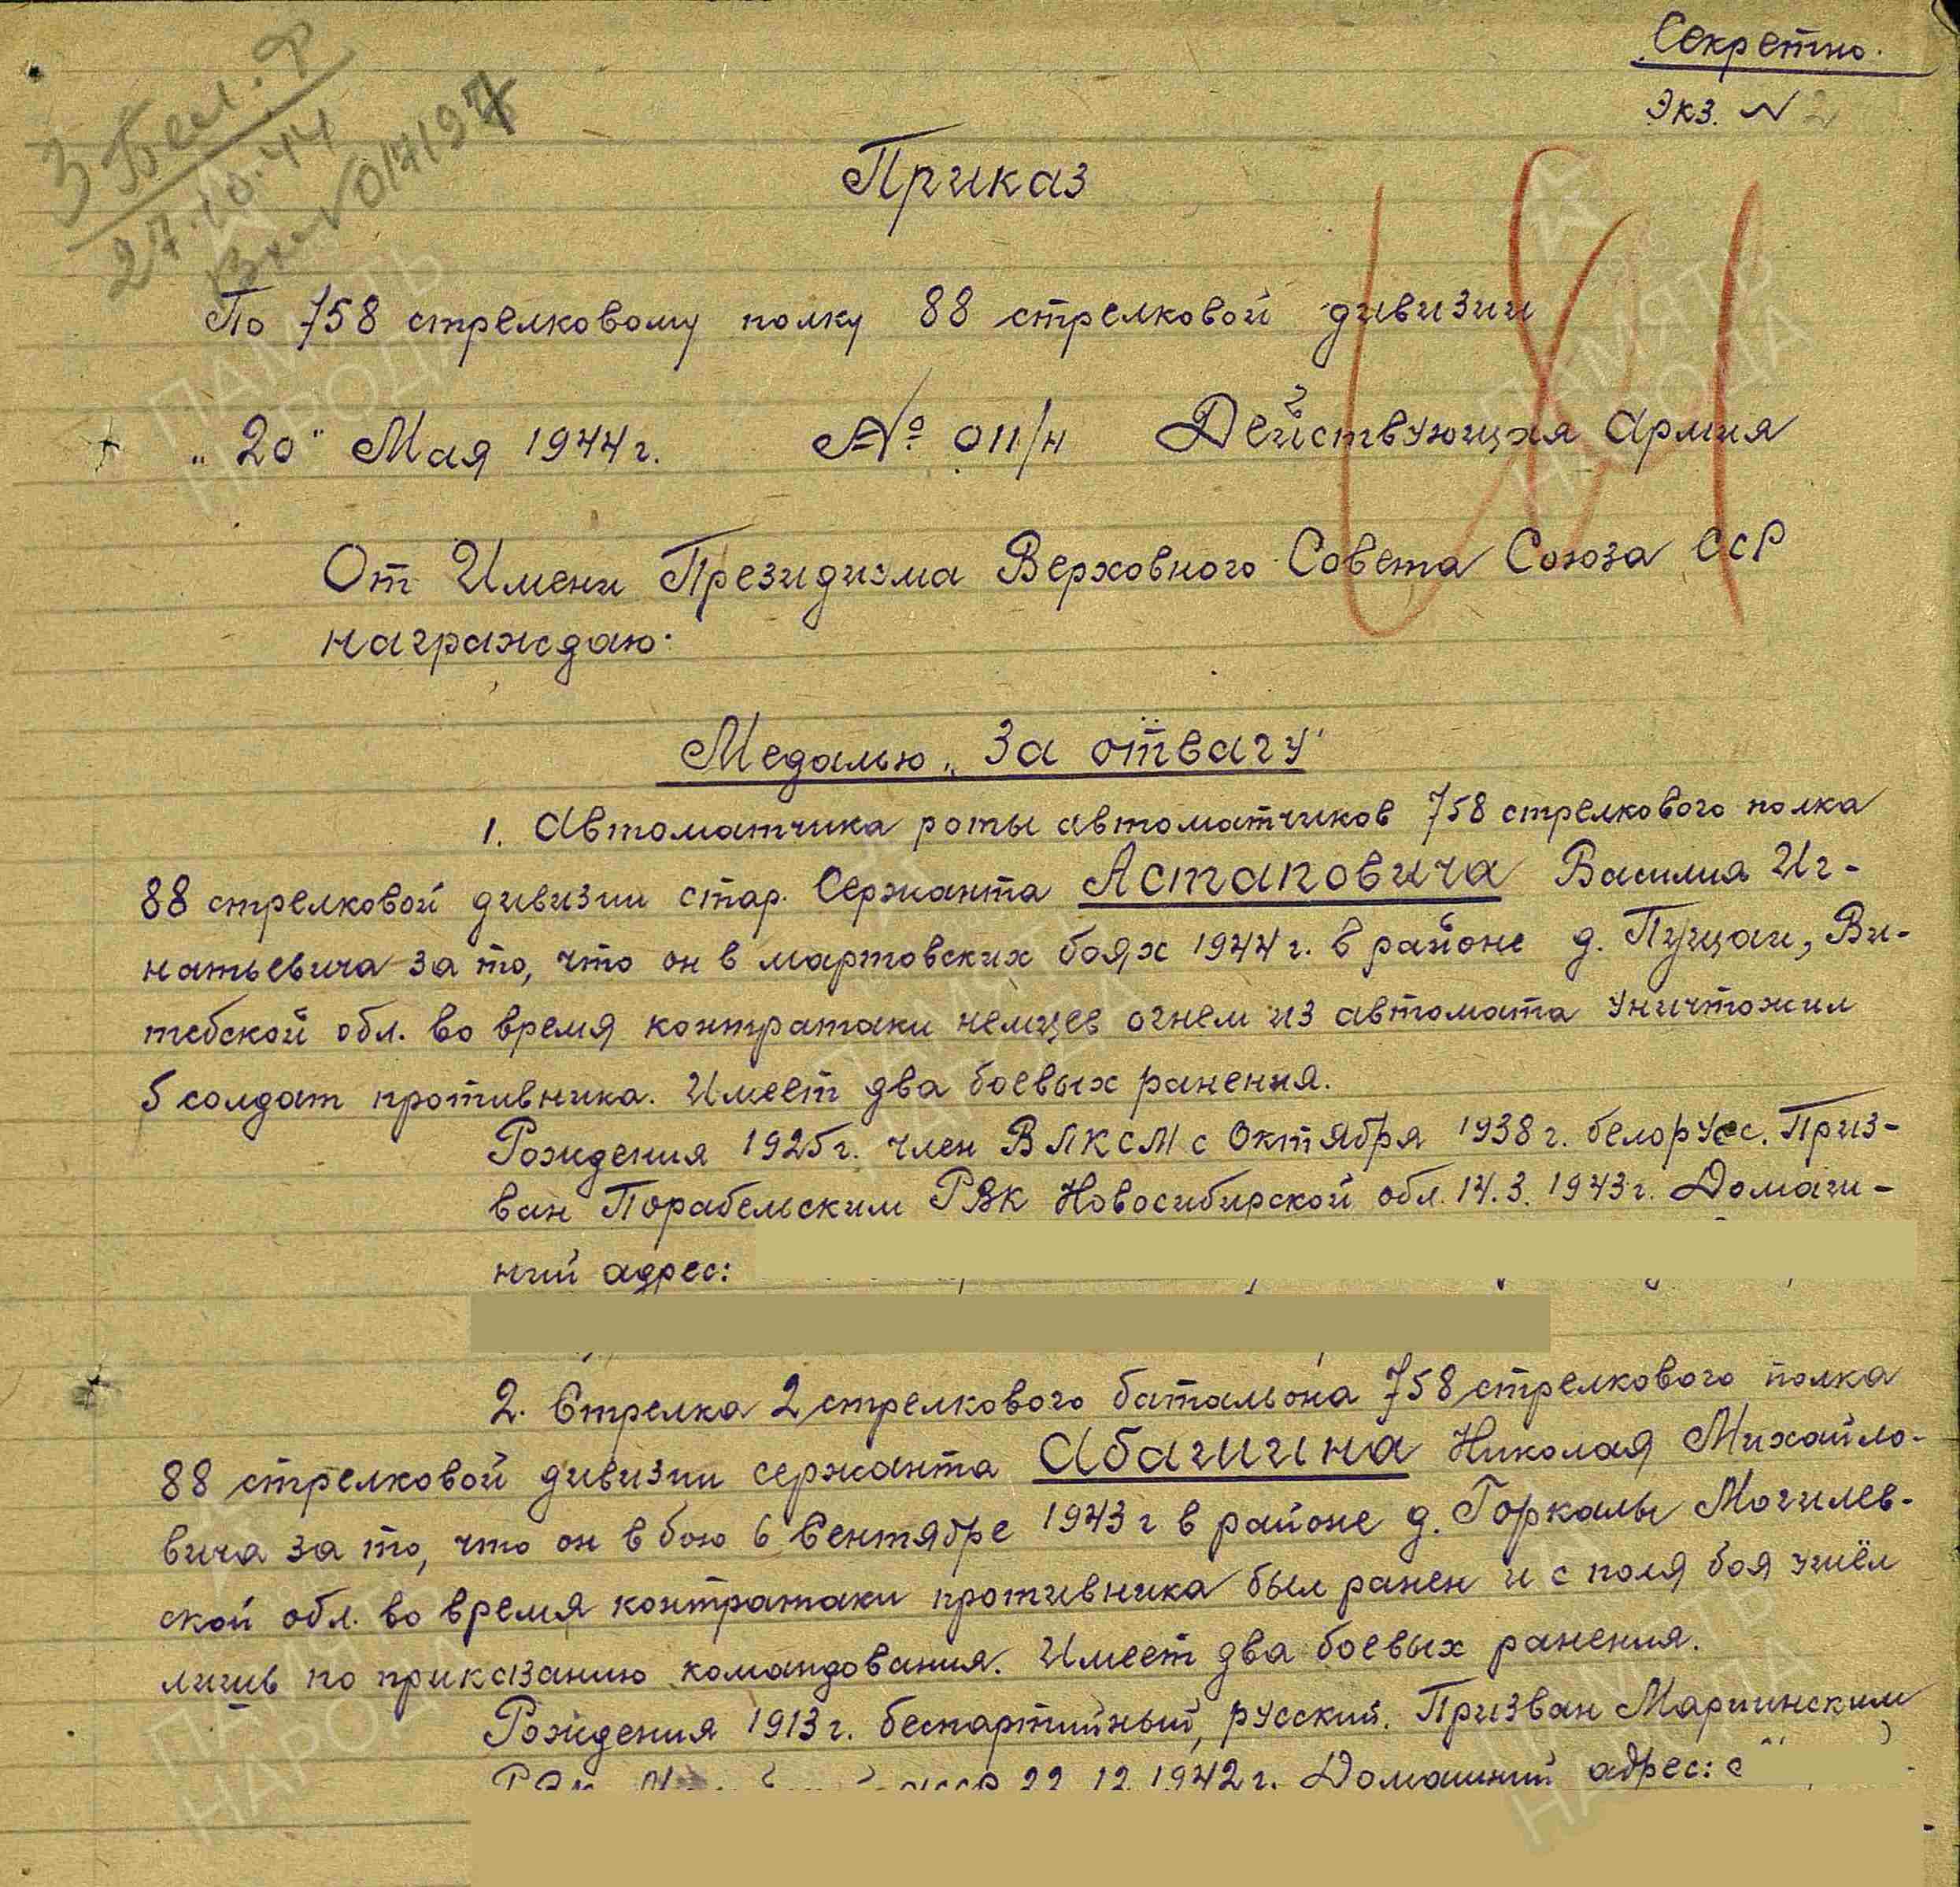 Секретно.
Экз. N 2
3 Бел. Ф
27.10.44
Вх. N 017197
Приказ
По 758 стрелковому полку 88 стрелковой дивизии
„20" Мая 1944 г. № 011/н Действующая Армия
От Имени Президиума Верховного Совета Союза ССР
награждаю:
Медалью „За отвагу"
1. Автоматчика роты автоматчиков 758 стрелкового полка
88 стрелковой дивизии стар. Сержанта Астаповича Василия Иг-
натьевича за то, что он в мартовских боях 1944 г. в районе д. Пущаи, Ви-
тебской обл. во время контратаки немцев огнем из автомата уничтожил
5 солдат противника. Имеет два боевых ранения.
Рождения 1925 г. член ВЛКСМ с Октября 1938 г. белорусс. Приз-
ван Порабельским РВК Новосибирской обл. 14.3.1943 г. Домаш-
ний адрес:
2. Стрелка 2 стрелкового батальона 758 стрелкового полка
88 стрелковой дивизии сержанта Абашина Николая Михайло-
вича за то, что он в бою 6 Сентябре 1943 г в районе д. Горкалы Могилев-
ской обл. во время контратаки противника был ранен и с поля боя ушёл
лишь по приказанию командования. Имеет два боевых ранения.
Рождения 1913 г. беспартийный, русский. Призван Мариинским
22.12.1942 г. Домашний адрес:
ПАМЯТЬ
НАРОДА